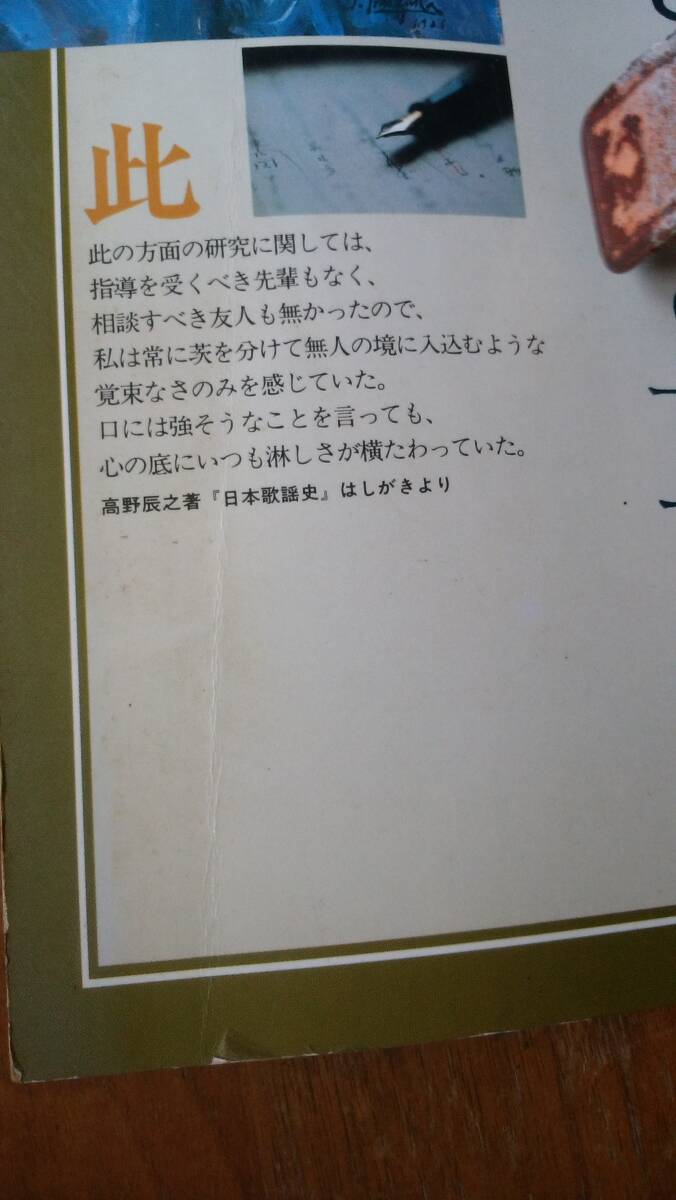 此
此の方面の研究に関しては、
指導を受くべき先輩もなく、
相談すべき友人も無かったので、
私は常に茨を分けて無人の境に入込むような
覚束なさのみを感じていた。
口には強そうなことを言っても、
心の底にいつも淋しさが横たわっていた。
高野辰之著『日本歌謡史』はしがきより